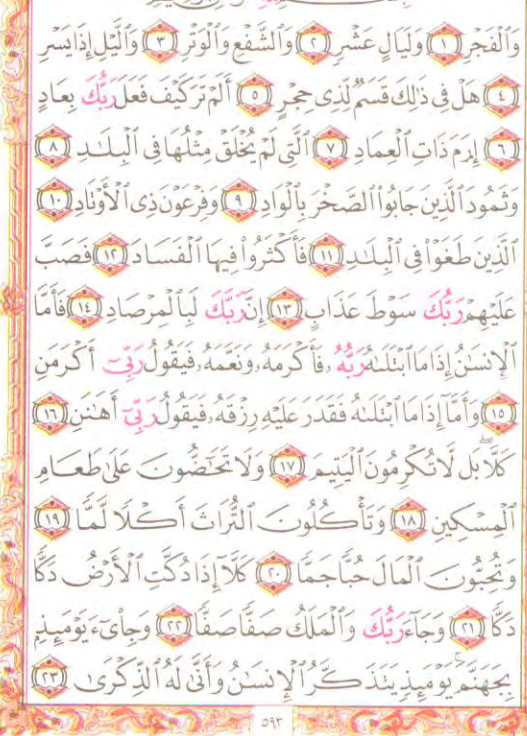 وَٱلْفَجْرِ ١ وَلَيَالٍ عَشْرٍ ٢ وَٱلشَّفْعِ وَٱلْوَتْرِ ٣ وَٱلَّيْلِ إِذَا يَسْرِ
٤ هَلْ فِى ذَٰلِكَ قَسَمٌ لِّذِى حِجْرٍ ٥ أَلَمْ تَرَ كَيْفَ فَعَلَ رَبُّكَ بِعَادٍ
٦ إِرَمَ ذَاتِ ٱلْعِمَادِ ٧ ٱلَّتِى لَمْ يُخْلَقْ مِثْلُهَا فِى ٱلْبِلَـٰدِ ٨
وَثَمُودَ ٱلَّذِينَ جَابُوا۟ ٱلصَّخْرَ بِٱلْوَادِ ٩ وَفِرْعَوْنَ ذِى ٱلْأَوْتَادِ ١٠
ٱلَّذِينَ طَغَوْا۟ فِى ٱلْبِلَـٰدِ ١١ فَأَكْثَرُوا۟ فِيهَا ٱلْفَسَادَ ١٢ فَصَبَّ
عَلَيْهِمْ رَبُّكَ سَوْطَ عَذَابٍ ١٣ إِنَّ رَبَّكَ لَبِٱلْمِرْصَادِ ١٤ فَأَمَّا
ٱلْإِنسَـٰنُ إِذَا مَا ٱبْتَلَىٰهُ رَبُّهُۥ فَأَكْرَمَهُۥ وَنَعَّمَهُۥ فَيَقُولُ رَبِّىٓ أَكْرَمَنِ
١٥ وَأَمَّآ إِذَا مَا ٱبْتَلَىٰهُ فَقَدَرَ عَلَيْهِ رِزْقَهُۥ فَيَقُولُ رَبِّىٓ أَهَـٰنَنِ ١٦
كَلَّا ۖ بَل لَّا تُكْرِمُونَ ٱلْيَتِيمَ ١٧ وَلَا تَحَـٰٓضُّونَ عَلَىٰ طَعَامِ
ٱلْمِسْكِينِ ١٨ وَتَأْكُلُونَ ٱلتُّرَاثَ أَكْلًا لَّمًّا ١٩
وَتُحِبُّونَ ٱلْمَالَ حُبًّا جَمًّا ٢٠ كَلَّآ إِذَا دُكَّتِ ٱلْأَرْضُ دَكًّا
دَكًّا ٢١ وَجَآءَ رَبُّكَ وَٱلْمَلَكُ صَفًّا صَفًّا ٢٢ وَجِا۟ىٓءَ يَوْمَئِذٍۭ
بِجَهَنَّمَ ۚ يَوْمَئِذٍ يَتَذَكَّرُ ٱلْإِنسَـٰنُ وَأَنَّىٰ لَهُ ٱلذِّكْرَىٰ ٢٣
٥٩٣